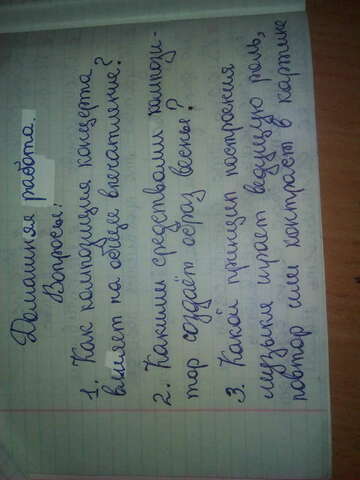 Домашняя работа.
Вопросы:
1. Как композиция концерта
влияет на общее впечатление?
2. Какими средствами компози-
тор создаёт образ весны?
3. Какой принцип построения
музыки играет ведущую роль,
повтор или контраст в картине